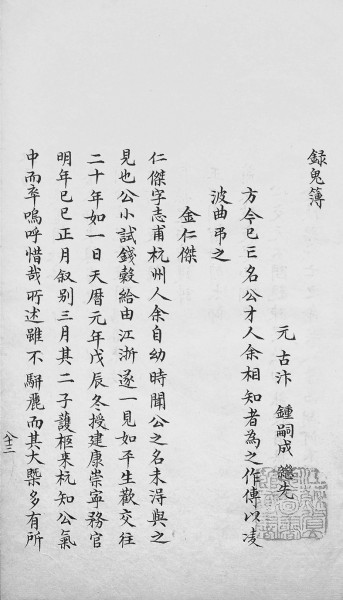 録鬼簿
元 古汴 鍾嗣成 繼先
方今已亡名公才人余相知者為之作傳以凌
波曲弔之
金仁傑
仁傑字志甫杭州人余自幼時聞公之名未得與之
見也公小試錢穀給由江浙遂一見如平生歡交往
二十年如一日天曆元年戊辰冬授建康崇寧務官
明年己巳正月叙别三月其二子護柩来杭知公氣
中而卒嗚呼惜哉所述雖不駢麗而其大槩多有所